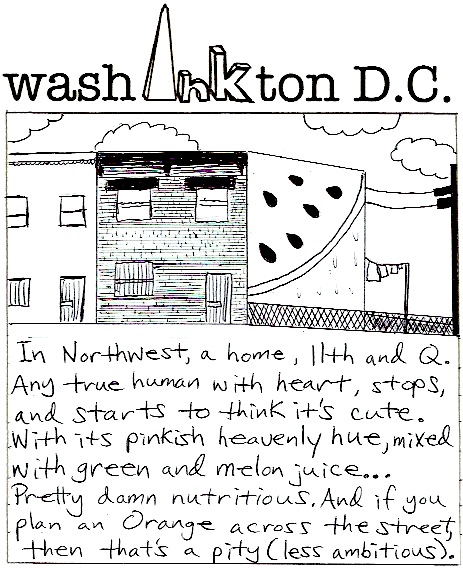 washInkton D.C.
In Northwest, a home, 11th and Q.
Any true human with heart, stops,
and starts to think it's cute.
With its pinkish heavenly hue, mixed
with green and melon juice...
Pretty damn nutritious. And if you
plan an Orange across the street,
then that's a pity (less ambitious).